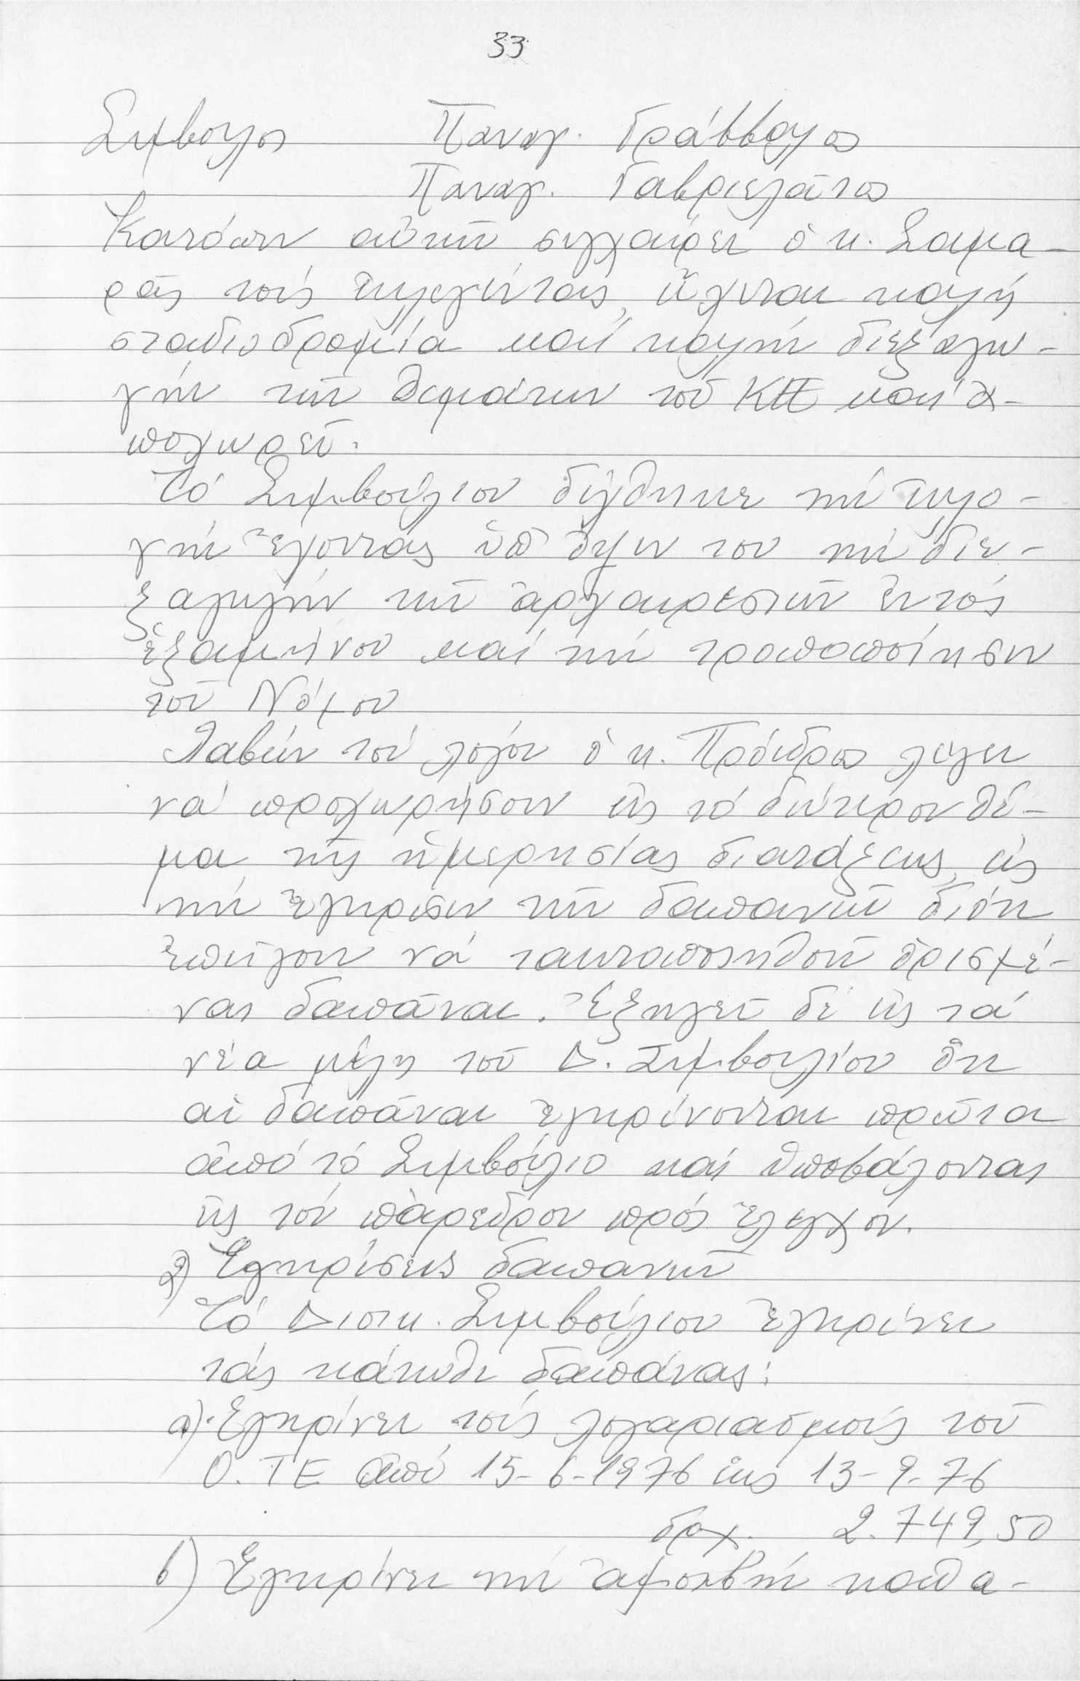 33
Σύμβουλος Παναγ. Γράββαλος
Παναγ. Γαβριελᾶτος
Κατόπιν αὐτῶν συγχαίρει ὁ κ. Σαμα-
ρᾶς τούς ἐκλεγέντας, εὔχεται καλή
σταδιοδρομία καί καλήν διεξαγω-
γήν τῶν θεμάτων τοῦ ΚΠΕ καί ἀ-
ποχωρεῖ.
Τό Συμβούλιον δέχθηκε τήν ἐκλο-
γήν ἔχοντας ὑπ' ὄψιν του τήν διε-
ξαγωγήν τῶν ἀρχαιρεσιῶν ἐντός
ἑξαμήνου καί τήν τροποποίησιν
τοῦ Νόμου
Λαβών τόν λόγον ὁ κ. Πρόεδρος λέγει
νά προχωρήσουν εἰς τό δεύτερον θέ-
μα τῆς ἡμερησίας διατάξεως, εἰς
τήν ἔγκρισιν τῶν δαπανῶν διότι
ἐπείγουν νά τακτοποιηθοῦν ὁρισμέ-
ναι δαπᾶναι. Ἐξηγεῖ δέ εἰς τά
νέα μέλη τοῦ Δ. Συμβουλίου ὅτι
αἱ δαπᾶναι ἐγκρίνονται πρῶτα
ἀπό τό Συμβούλιο καί ὑποβάλονται
εἰς τόν πάρεδρον πρός ἔλεγχον.
2) Ἐγκρίσεις δαπανῶν
Τό Διοικ. Συμβούλιον ἐγκρίνει
τάς κάτωθι δαπάνας:
α) Ἐγκρίνει τούς λογαριασμούς τοῦ
Ο.ΤΕ ἀπό 15-6-1976 ἕως 13-9-76
δρχ. 2.749,50
β) Ἐγκρίνει τήν ἀμοιβήν καθα-